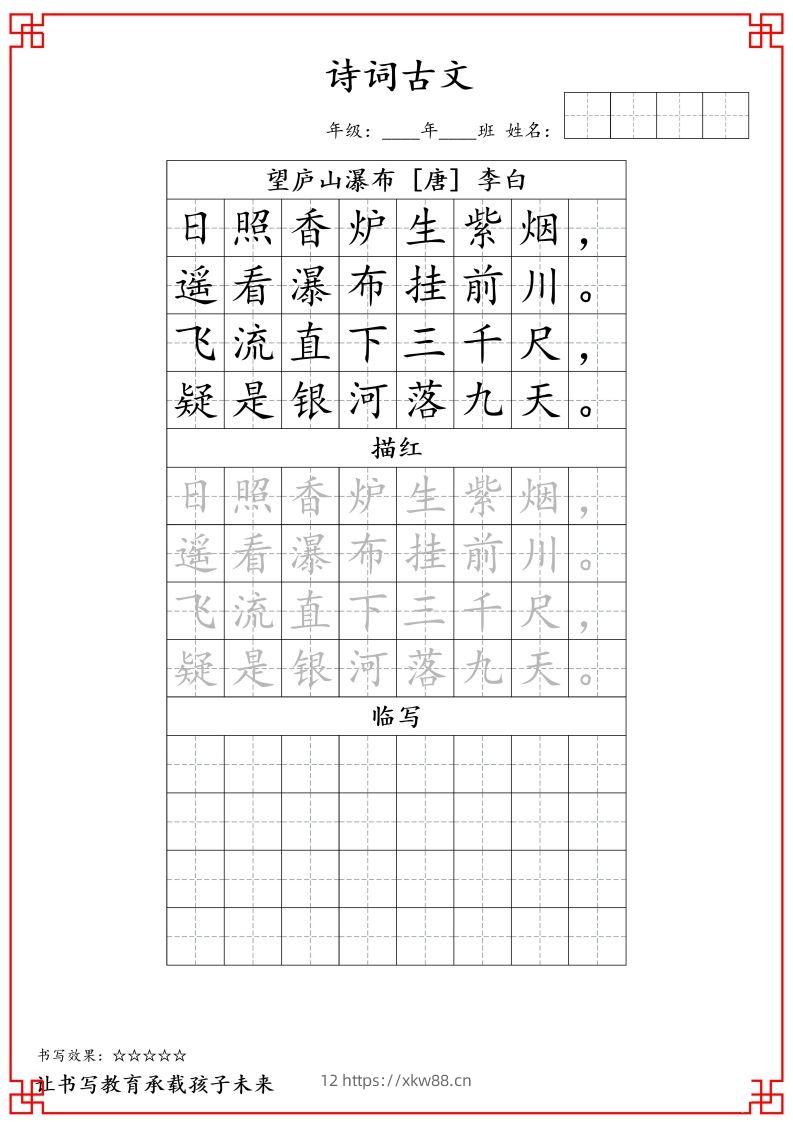 诗词古文
年级：____年____班 姓名：
望庐山瀑布［唐］李白
日照香炉生紫烟，
遥看瀑布挂前川。
飞流直下三千尺，
疑是银河落九天。
描红
日照香炉生紫烟，
遥看瀑布挂前川。
飞流直下三千尺，
疑是银河落九天。
临写
书写效果：☆☆☆☆☆
让书写教育承载孩子未来
12 https://xkw88.cn